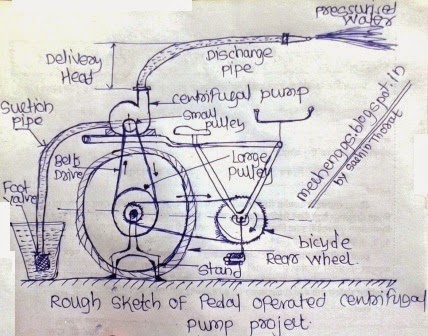 Pressurised
Water
Delivery
Head
Discharge
pipe
centrifugal pump
Small
pulley
Suction
pipe
Belt
Drive
Large
pulley
Foot
valve
bicycle
Rear wheel.
Stand
mechengg.blogspot.in
by Sachin Thorat
Rough Sketch of Pedal operated centrifugal
pump project.